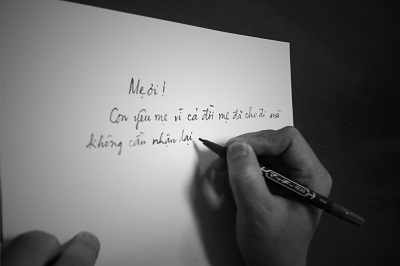 Mẹ ơi!
Con yêu mẹ vì cả đời mẹ đã cho đi mà
không cần nhận lại